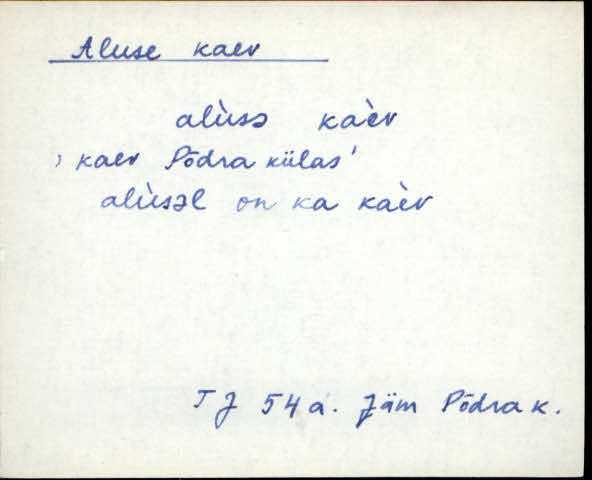 Aluse kaev
alùsə kaèv
' kaev Põdra külas'
alùsəl on ka kaèv
TJ 54 a. Jäm Põdra k.